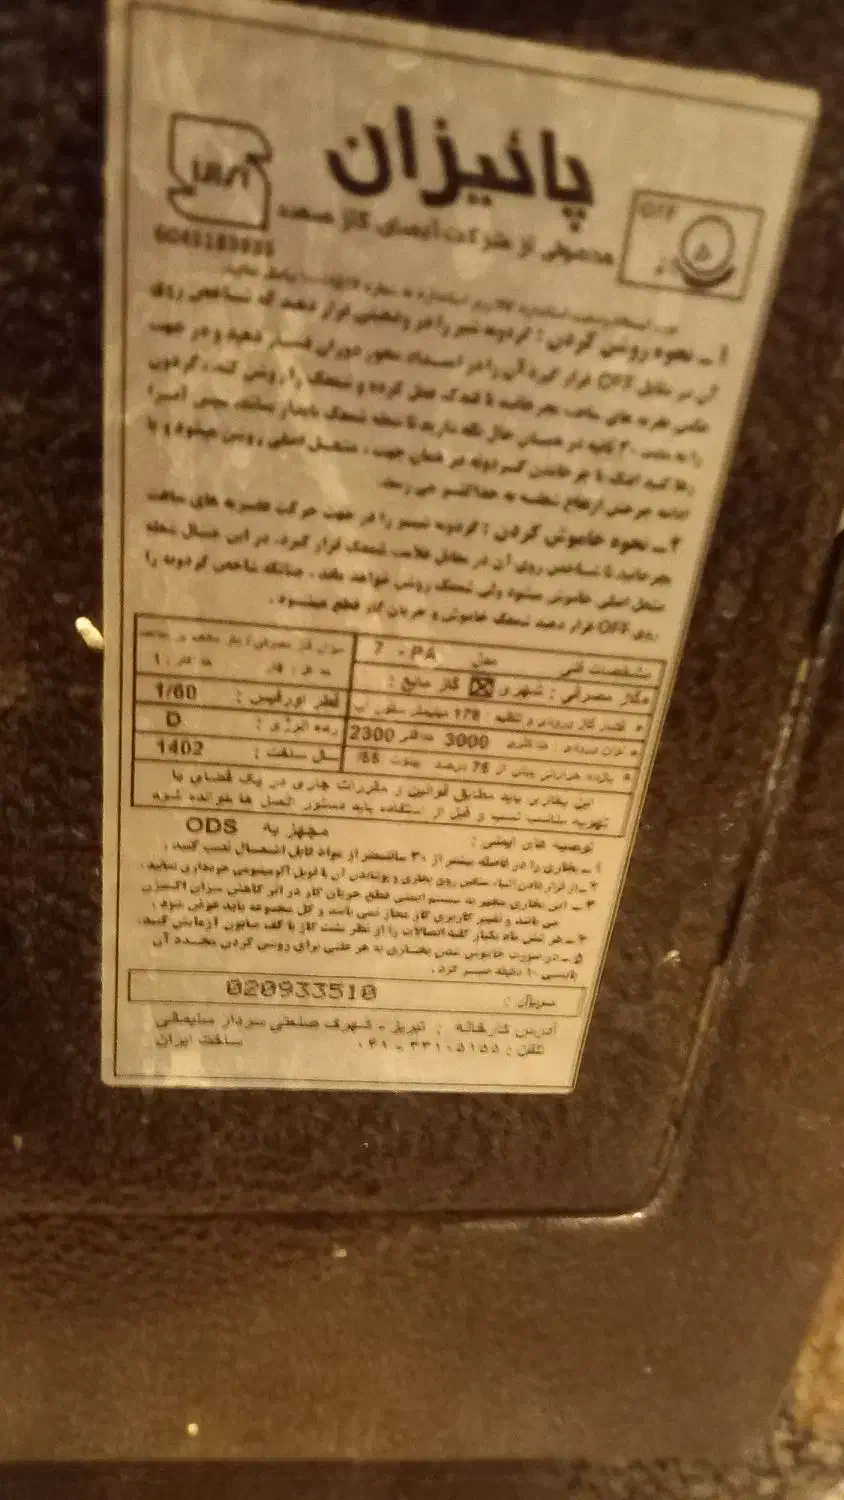 پائیزان
OFF
محصولی از شرکت آبسای گاز سهند
۱ـ نحوه روشن کردن : گردونه شیر را در وضعیتی قرار دهید که شاخص روی
آن در مقابل OFF قرار گیرد آن را در امتداد محور دوران فشار دهید و در جهت
عکس عقربه های ساعت بچرخانید تا فندک عمل کرده و شمعک را روشن کند ، گردون
را به مدت ۲۰ ثانیه در همان حال نگه دارید تا شعله شمعک پایدار بماند، سپس آنرا
رها کنید اینک با چرخاندن گردونه در همان جهت ، مشعل اصلی روشن میشود و با
ادامه چرخش ارتفاع شعله به حداکثر می رسد.
۲ـ نحوه خاموش کردن : گردونه شیر را در جهت حرکت عقربه های ساعت
بچرخانید تا شاخص روی آن در مقابل علامت شمعک قرار گیرد. در این حال شعله
مشعل اصلی خاموش میشود ولی شمعک روشن خواهد ماند . چنانکه شاخص گردونه را
روی OFF قرار دهید شمعک خاموش و جریان گاز قطع میشود .
مشخصات فنی مدل 7 - PA
گاز مصرفی : شهری گاز مایع :
قطر اورفیس : 1/60
توان ورودی : حداکثری 3000 حداقلی 2300
رده انرژی : D
بازده حرارتی بیش از 76 درصد
سال ساخت : 1402
این بخاری باید مطابق قوانین و مقررات جاری در یک فضای با
تهویه مناسب نصب و قبل از استفاده باید دستور العمل ها خوانده شود
توصیه های ایمنی : مجهز به ODS
۱ـ بخاری را در فاصله بیشتر از ۳۰ سانتیمتر از مواد قابل اشتعال نصب کنید .
۲ـ از قرار دادن اشیاء سنگین روی بخاری و پوشاندن آن با فویل آلومینیومی خودداری نمایید .
۳ـ این بخاری مجهز به سیستم ایمنی قطع جریان گاز در اثر کاهش میزان اکسیژن
می باشد و تغییر کاربری گاز مجاز نمی باشد و کل مجموعه باید عوض شود .
۴ـ هر شش ماه یکبار کلیه اتصالات را از نظر نشت گاز با کف صابون آزمایش کنید.
۵ـ در صورت خاموش شدن بخاری به هر علتی برای روشن کردن مجدد آن
بایستی ۱۰ دقیقه صبر کرد .
سریال : 020933510
آدرس کارخانه : تبریز ـ شهرک صنعتی سردار سلیمانی
تلفن : ۳۳۱۰۵۱۵۵ - ۰۴۱ ساخت ایران